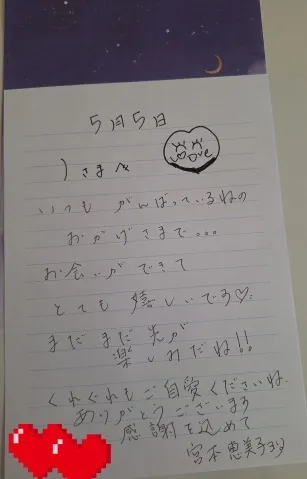 5月5日
Love
)さまへ
いつも がんばっているねの
おかげさまで...
お会いができて
とても 嬉しいです♡.
まだまだ 先が
楽しみだね!!
くれぐれもご自愛くださいね.
ありがとうございます
感謝を込めて
宮本恵美子ヨリ